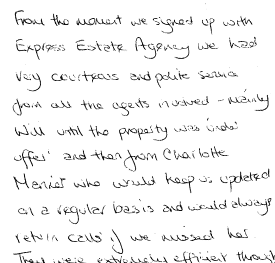 From the moment we signed up with
Express Estate Agency we had
very courteous and polite service
from all the agents involved - mainly
Will until the property was 'under
offer' and then from Charlotte
who would keep us updated
on a regular basis and would always
return calls if we missed her.
They were extremely efficient through